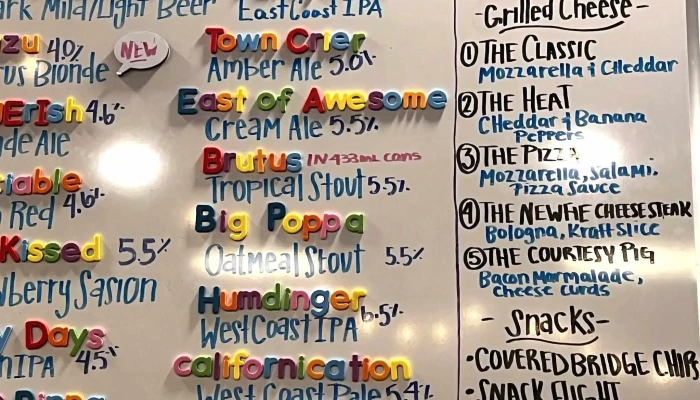 ark Mild/Light Beer
zu 4.0%
NEW
rus Blonde
Erish 4.6%
de Ale
iable
Red 4.6%
Kissed 5.5%
wberry Sasion
y Days
IPA 4.5%
East Coast IPA
Town Crier
Amber Ale 5.0%
East of Awesome
Cream Ale 5.5%
Brutus IN 433mL cans
Tropical Stout 5.5%
Big Poppa
Oatmeal Stout 5.5%
Humdinger
West Coast IPA 6.5%
californication
West Coast Pale 5.4%
-Grilled Cheese-
① THE CLASSIC
Mozzarella & Cheddar
② THE HEAT
Cheddar & Banana
Peppers
③ THE PIZZA
Mozzarella, Salami.
Pizza Sauce
④ THE NEWFIE CHEESESTEAK
Bologna, Kraft Slice
⑤ THE COURTESY PIG
Bacon Marmalade,
cheese curds
- Snacks-
•COVERED BRIDGE CHIPS
•SNACK FLIGHT